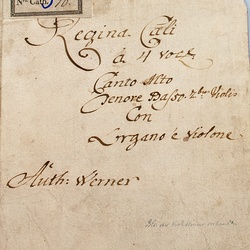 Nro Cath. 10.
Regina Cæli
à 4 voci
Canto Alto
Tenore Basso. 2bus Violis
Con
L'organo è Violone
Auth: Werner